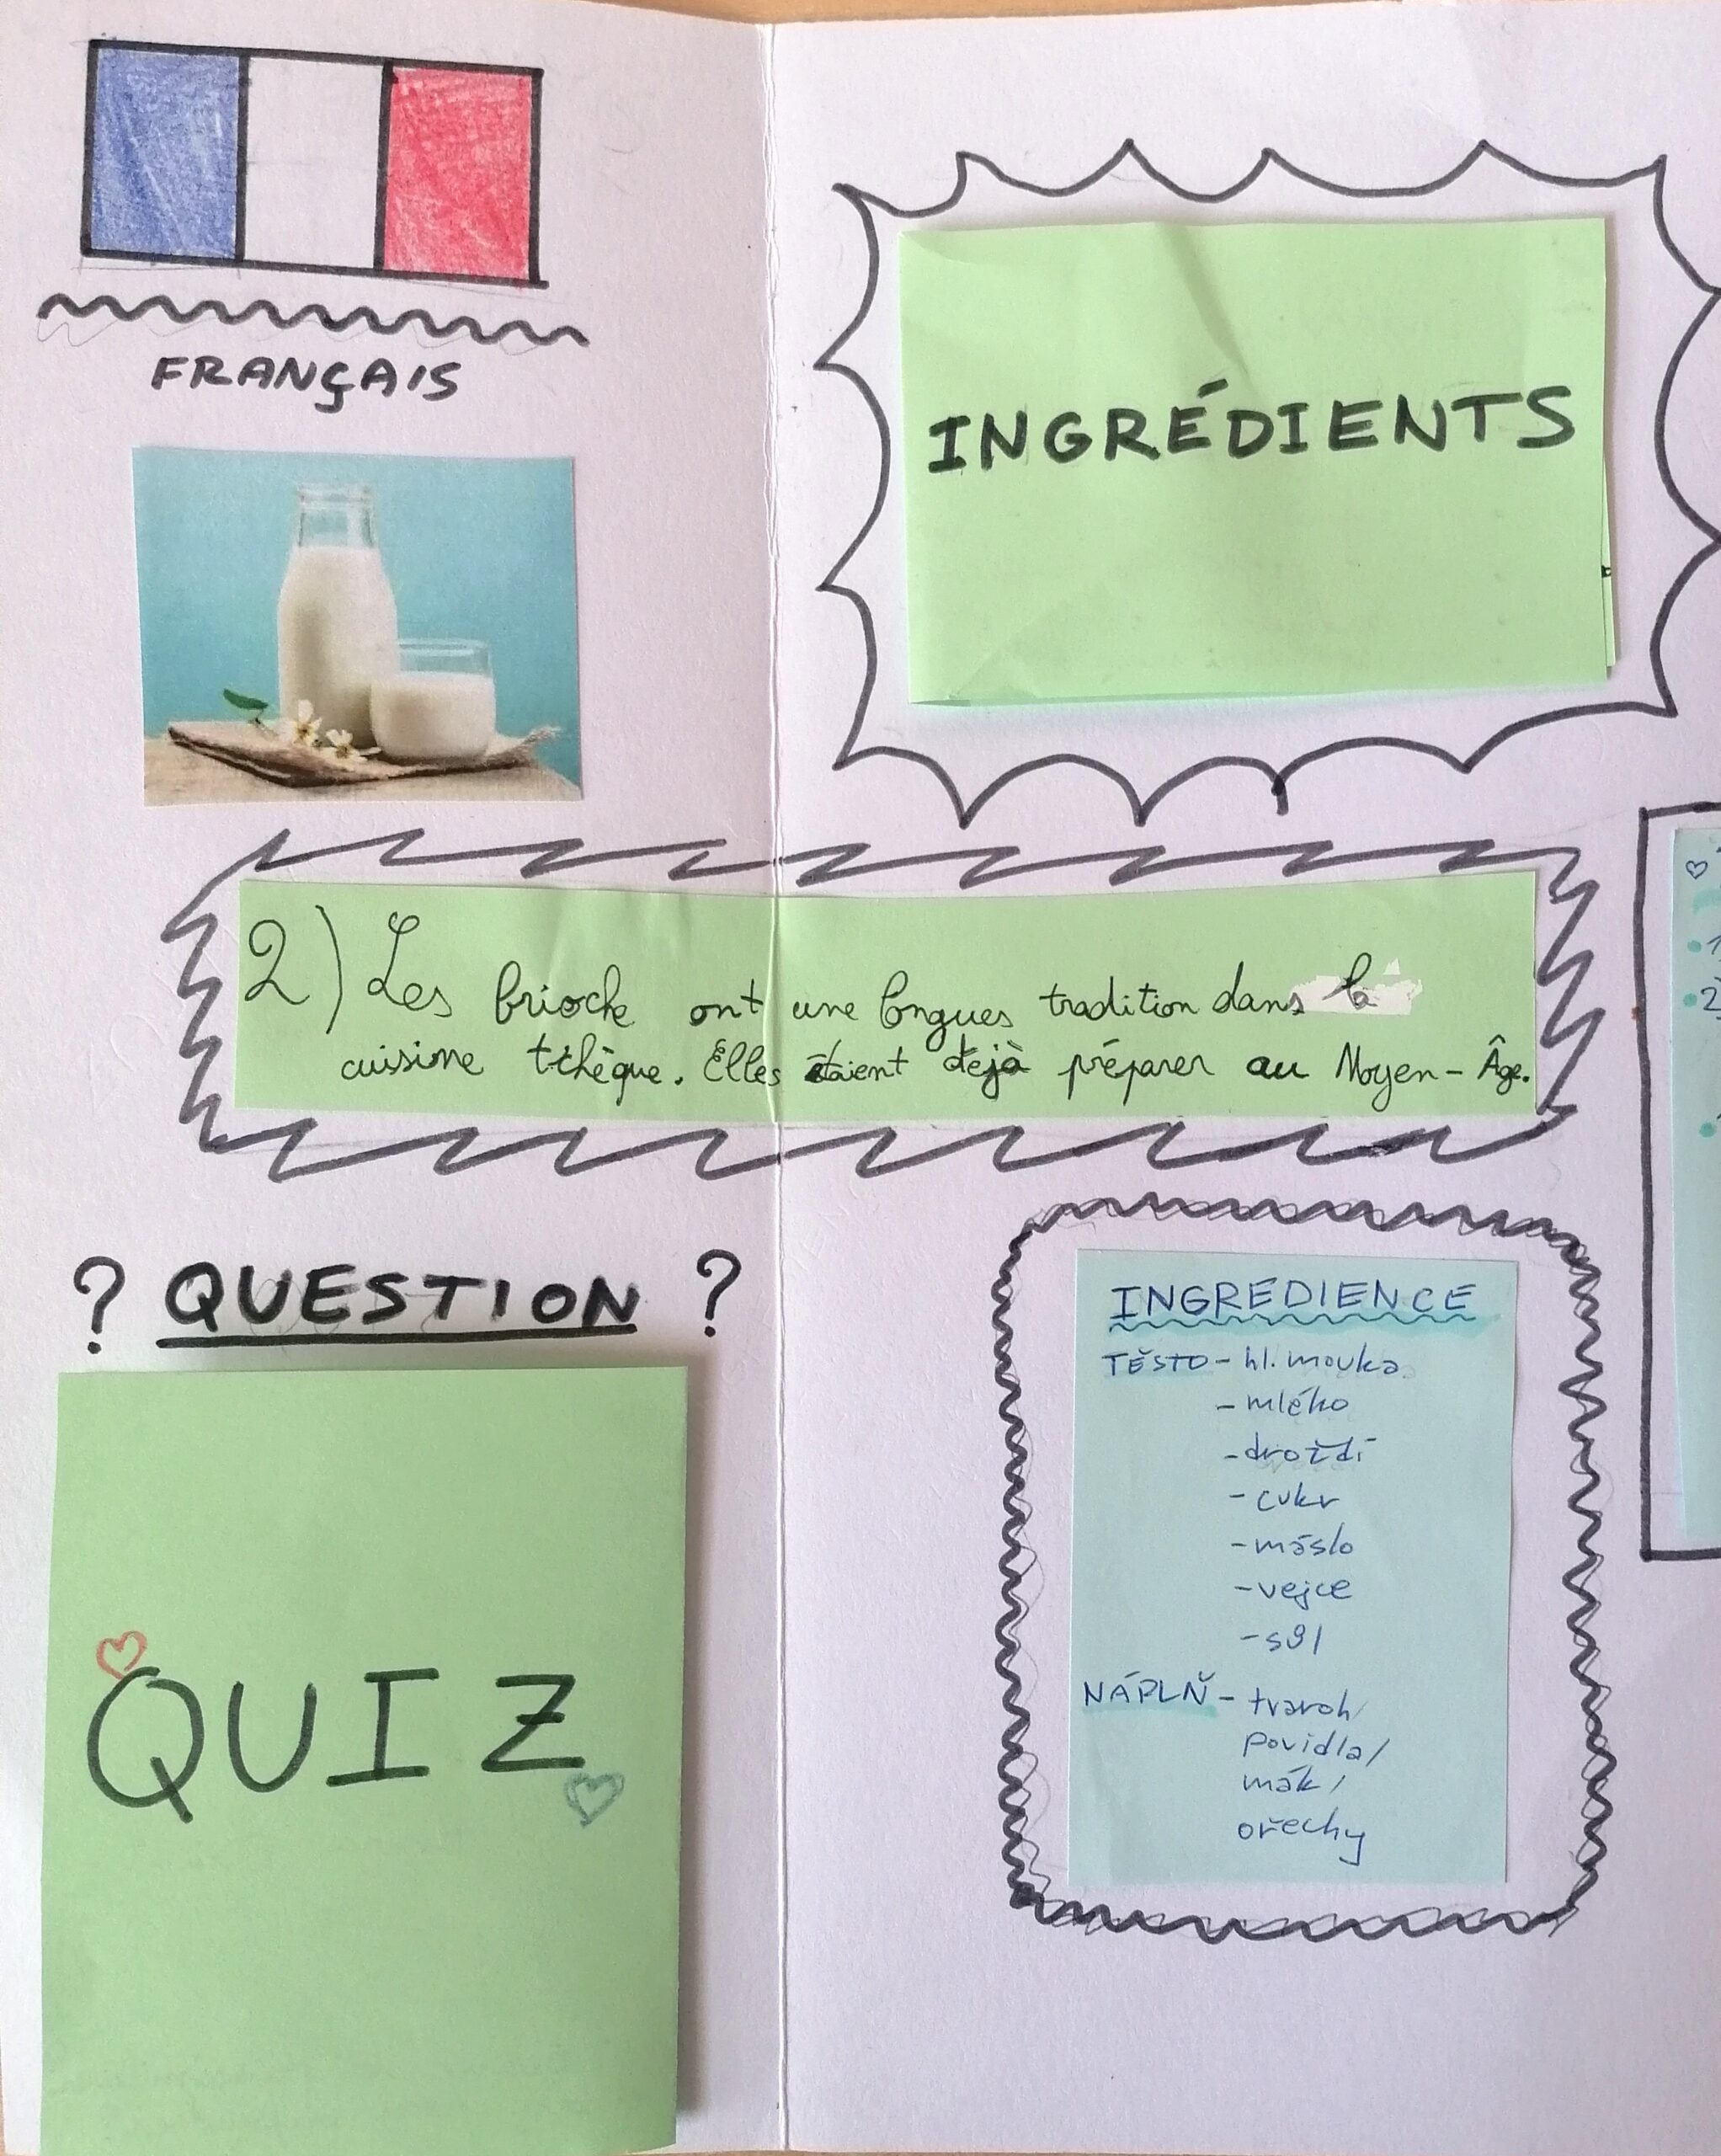 FRANÇAIS
INGRÉDIENTS
2) Les brioche ont une longues tradition dans la
cuisine tchèque. Elles étaient dejà préparer au Moyen-Âge.
? QUESTION ?
QUIZ
INGREDIENCE
TĚSTO - hl. mouka
- mléko
- droždí
- cukr
- máslo
- vejce
- sůl
NÁPLŇ - tvaroh/
povidla/
mák/
ořechy